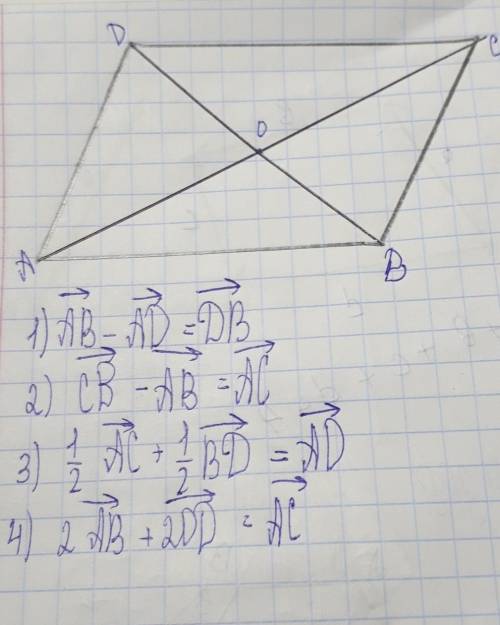 D C
O
A B
1) $\overrightarrow{AB} - \overrightarrow{AD} = \overrightarrow{DB}$
2) $\overrightarrow{CB} - \overrightarrow{AB} = \overrightarrow{AC}$
3) $\frac{1}{2} \overrightarrow{AC} + \frac{1}{2} \overrightarrow{BD} = \overrightarrow{AD}$
4) $2\overrightarrow{AB} + 2\overrightarrow{OD} = \overrightarrow{AC}$